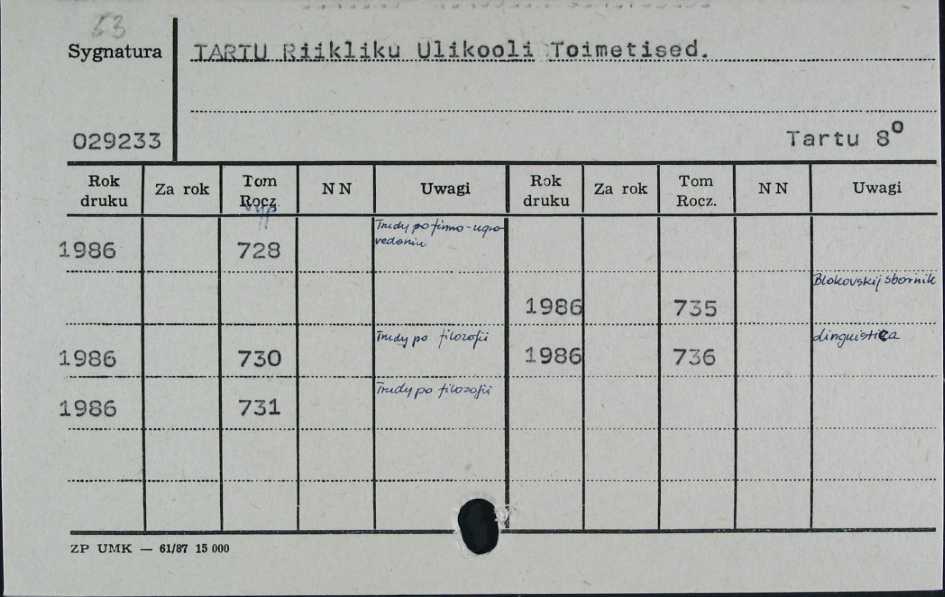 53
Sygnatura
TARTU Riikliku Ulikooli Toimetised.
029233
Tartu 8⁰
Rok druku Za rok Tom Rocz. NN Uwagi Rok druku Za rok Tom Rocz. NN Uwagi
Trudy po finno-ugro-
vedeniu
1986 728
Blokovskij sbornik
1986 735
Trudy po filozofii
linguistica
1986 730 1986 736
Trudy po filozofii
1986 731
ZP UMK — 61/87 15 000